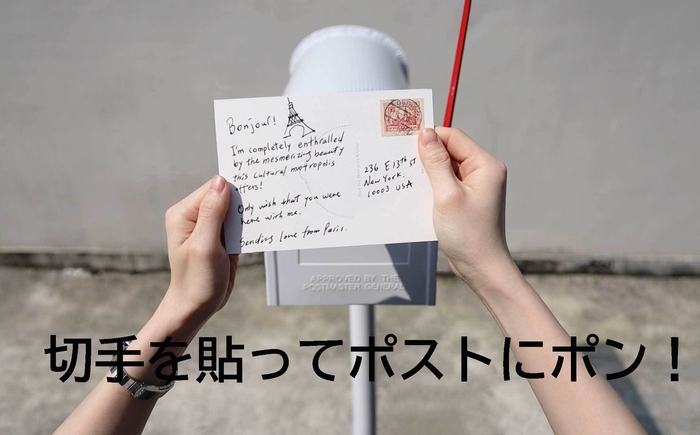 Bonjour!
I'm completely enthralled
by the mesmerizing beauty
this cultural metropolis
offers!
Only wish that you were
here with me.
Sending love from Paris.
236 E 13th ST
New York.
10003 USA
APPROVED BY THE
POSTMASTER GENERAL
切手を貼ってポストにポン！